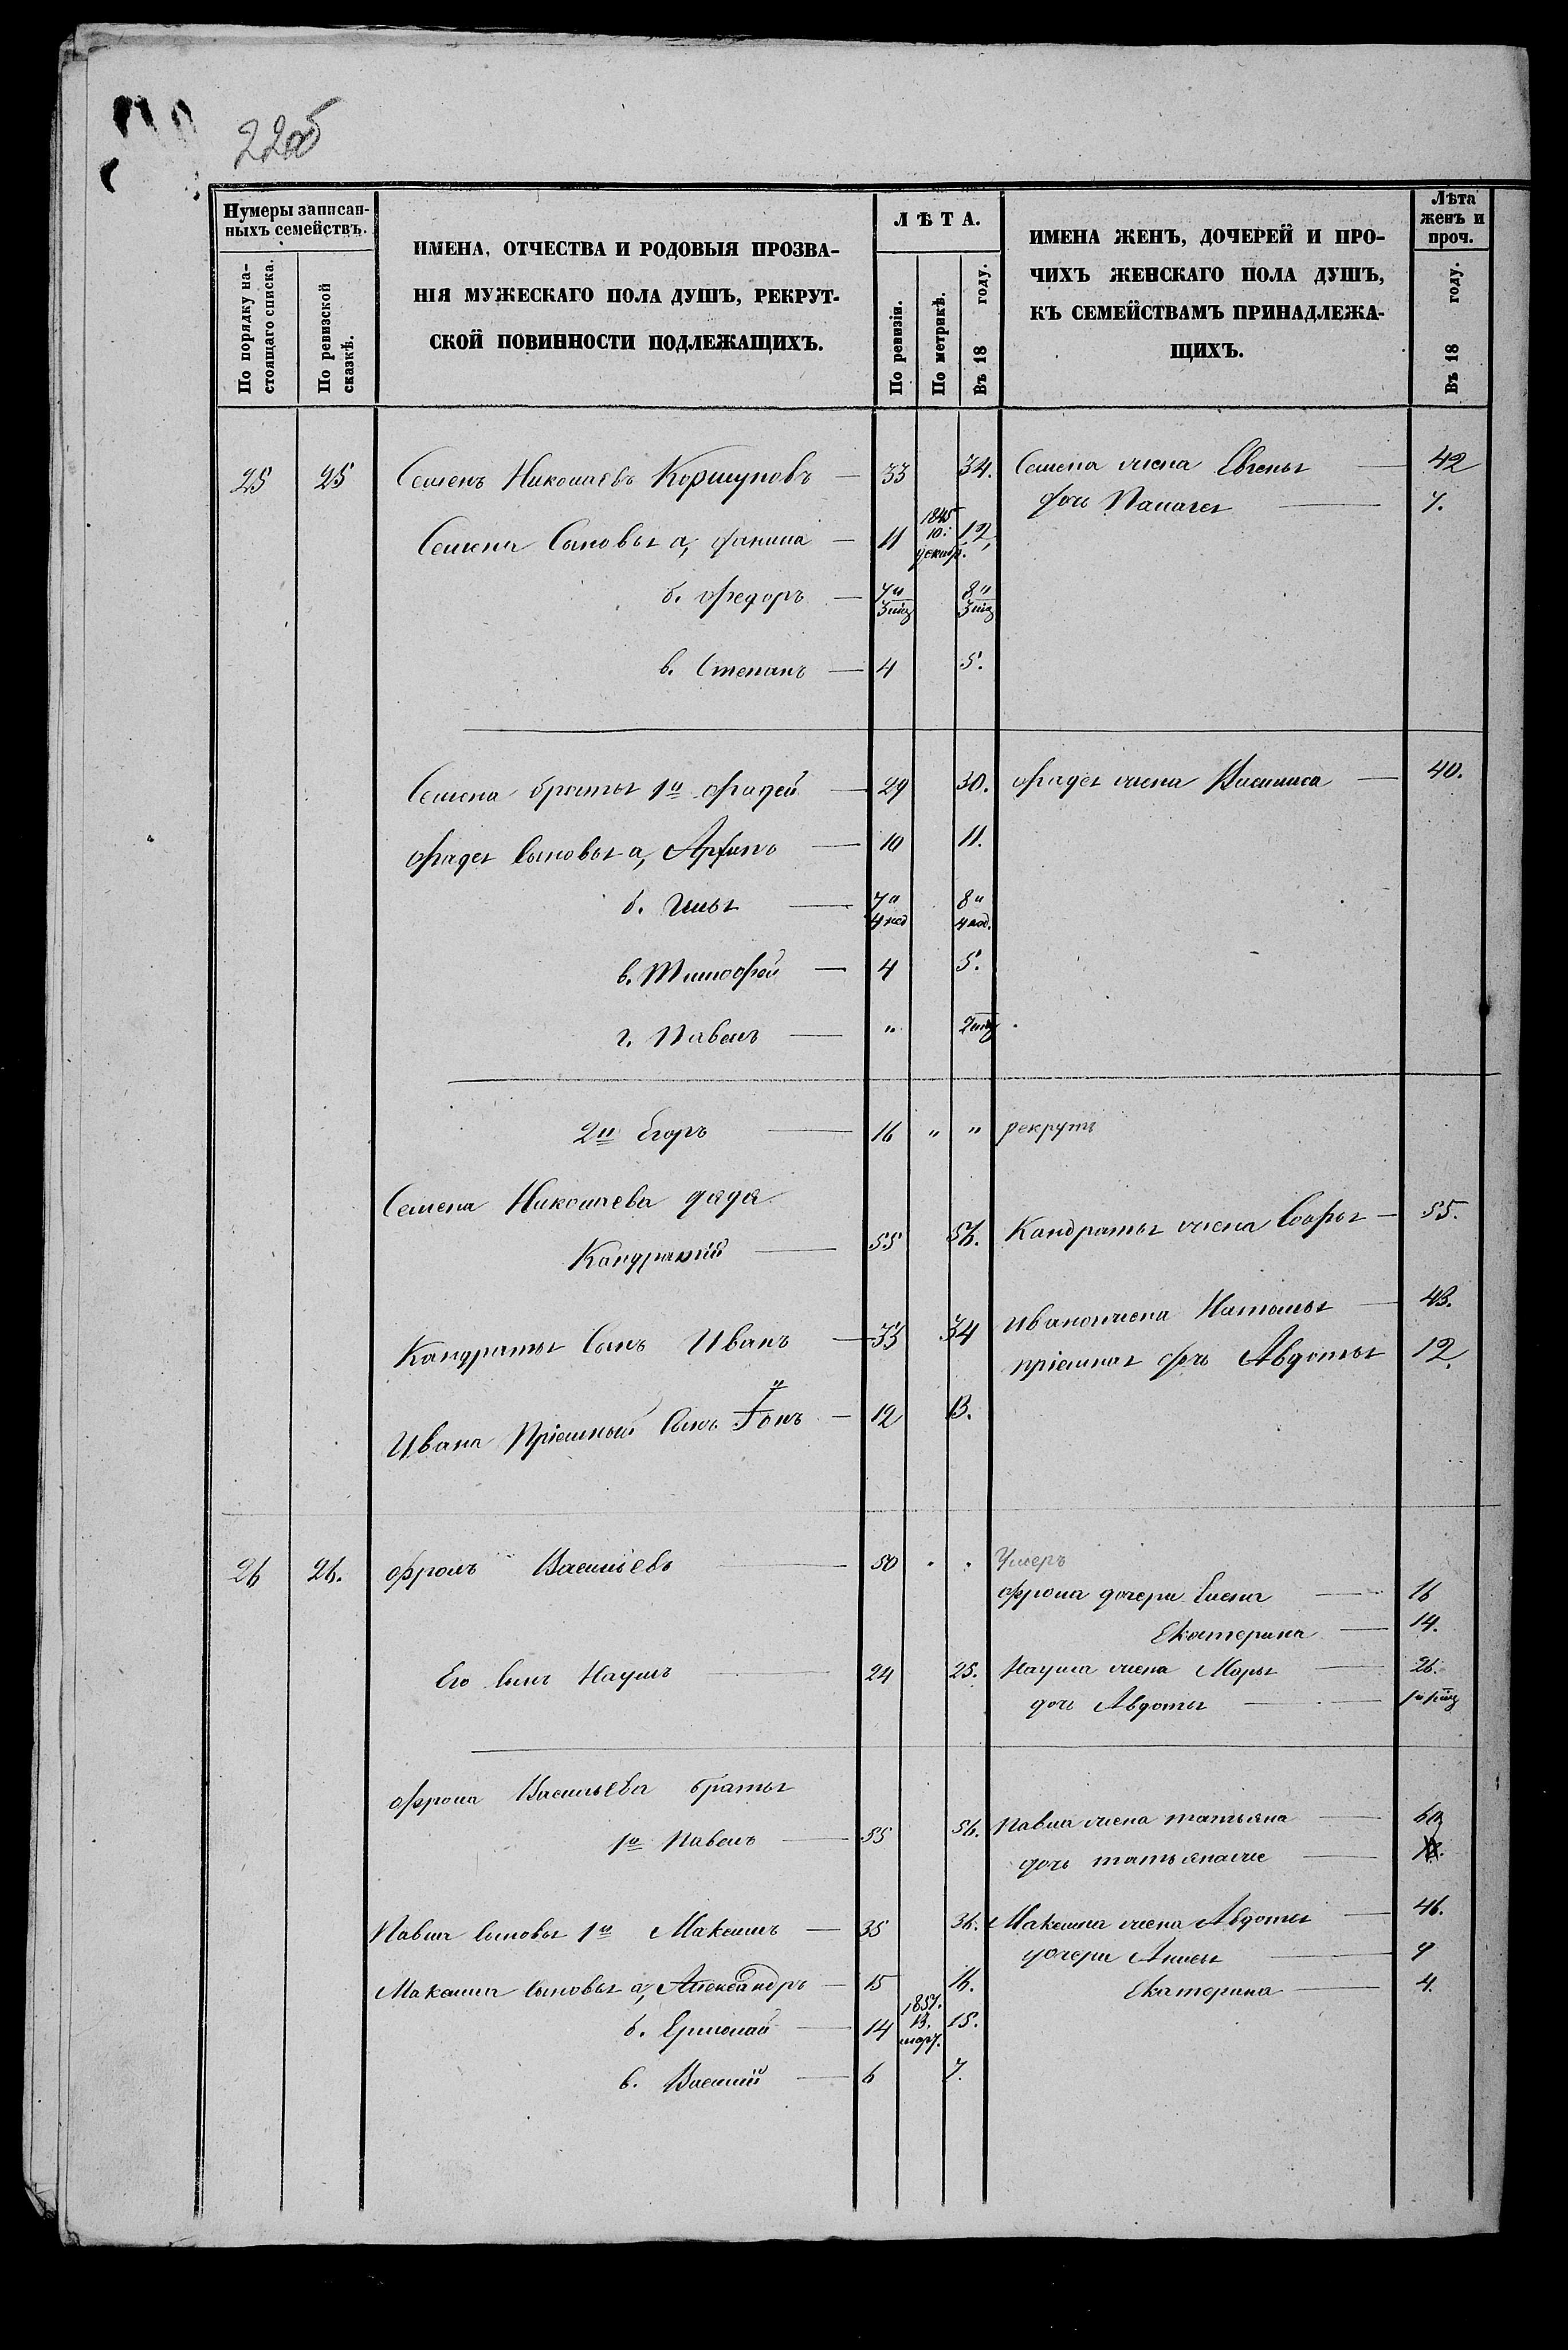 22об
Нумеры записан-
ныхъ семействъ.
По порядку на-
стоящаго списка.
По ревизской
сказкѣ.
ИМЕНА, ОТЧЕСТВА И РОДОВЫЯ ПРОЗВА-
НІЯ МУЖЕСКАГО ПОЛА ДУШЪ, РЕКРУТ-
СКОЙ ПОВИННОСТИ ПОДЛЕЖАЩИХЪ.
ЛѢТА.
По ревизіи.
По метрикѣ.
Въ 18 году.
ИМЕНА ЖЕНЪ, ДОЧЕРЕЙ И ПРО-
ЧИХЪ ЖЕНСКАГО ПОЛА ДУШЪ,
КЪ СЕМЕЙСТВАМЪ ПРИНАДЛЕЖА-
ЩИХЪ.
Лѣта
женъ и
проч.
Въ 18 году.
25 25 Семенъ Николаевъ Коршуновъ — 33 34. Семена жена Евгенья — 42
дочь Палагея — 7.
Семена Сыновья а, Данила — 11 1845 10. декабр. 12,
б. Федоръ — 7 и 3 мѣ 8 и 3 мѣ
в. Степанъ — 4 5.
Семена братья 1й Фадей — 29 30. Фадея жена Василиса — 40.
Фадея Сыновья а, — 10 11.
б. Илья — 7 и 4 нед 8 и 4 нед.
в. Тимофей — 4 5.
г. Павелъ — " 2 мѣ
2й Егоръ — 16 " " рекрутъ
Семена Николаева дядя
Кандратій — 55 56. Кандратья жена Софья — 55.
Кандратья Сынъ Иванъ — 33 34 Ивана жена Наталья — 43.
пріемная дочь Авдотья 12.
Ивана Пріемный Сынъ — 12 13.
26 26. Фролъ Васильевъ — 50 Умеръ
Фрола дочери Елена — 16
Екатерина — 14.
Его Сынъ Наумъ — 24 25. Наума жена Марья — 26.
дочь Авдотья —
Фрола Васильева братья
1й Павелъ — 55 56. Павла жена татьяна — 60
дочь —
Павла Сыновья 1й Максимъ — 35 36. Максима жена Авдотья — 46.
дочери Анисья — 9
Максима Сыновья а, Александръ — 15 16. Екатерина — 4.
б. Ермолай — 14 13. март. 15.
в. Василій — 6 7.